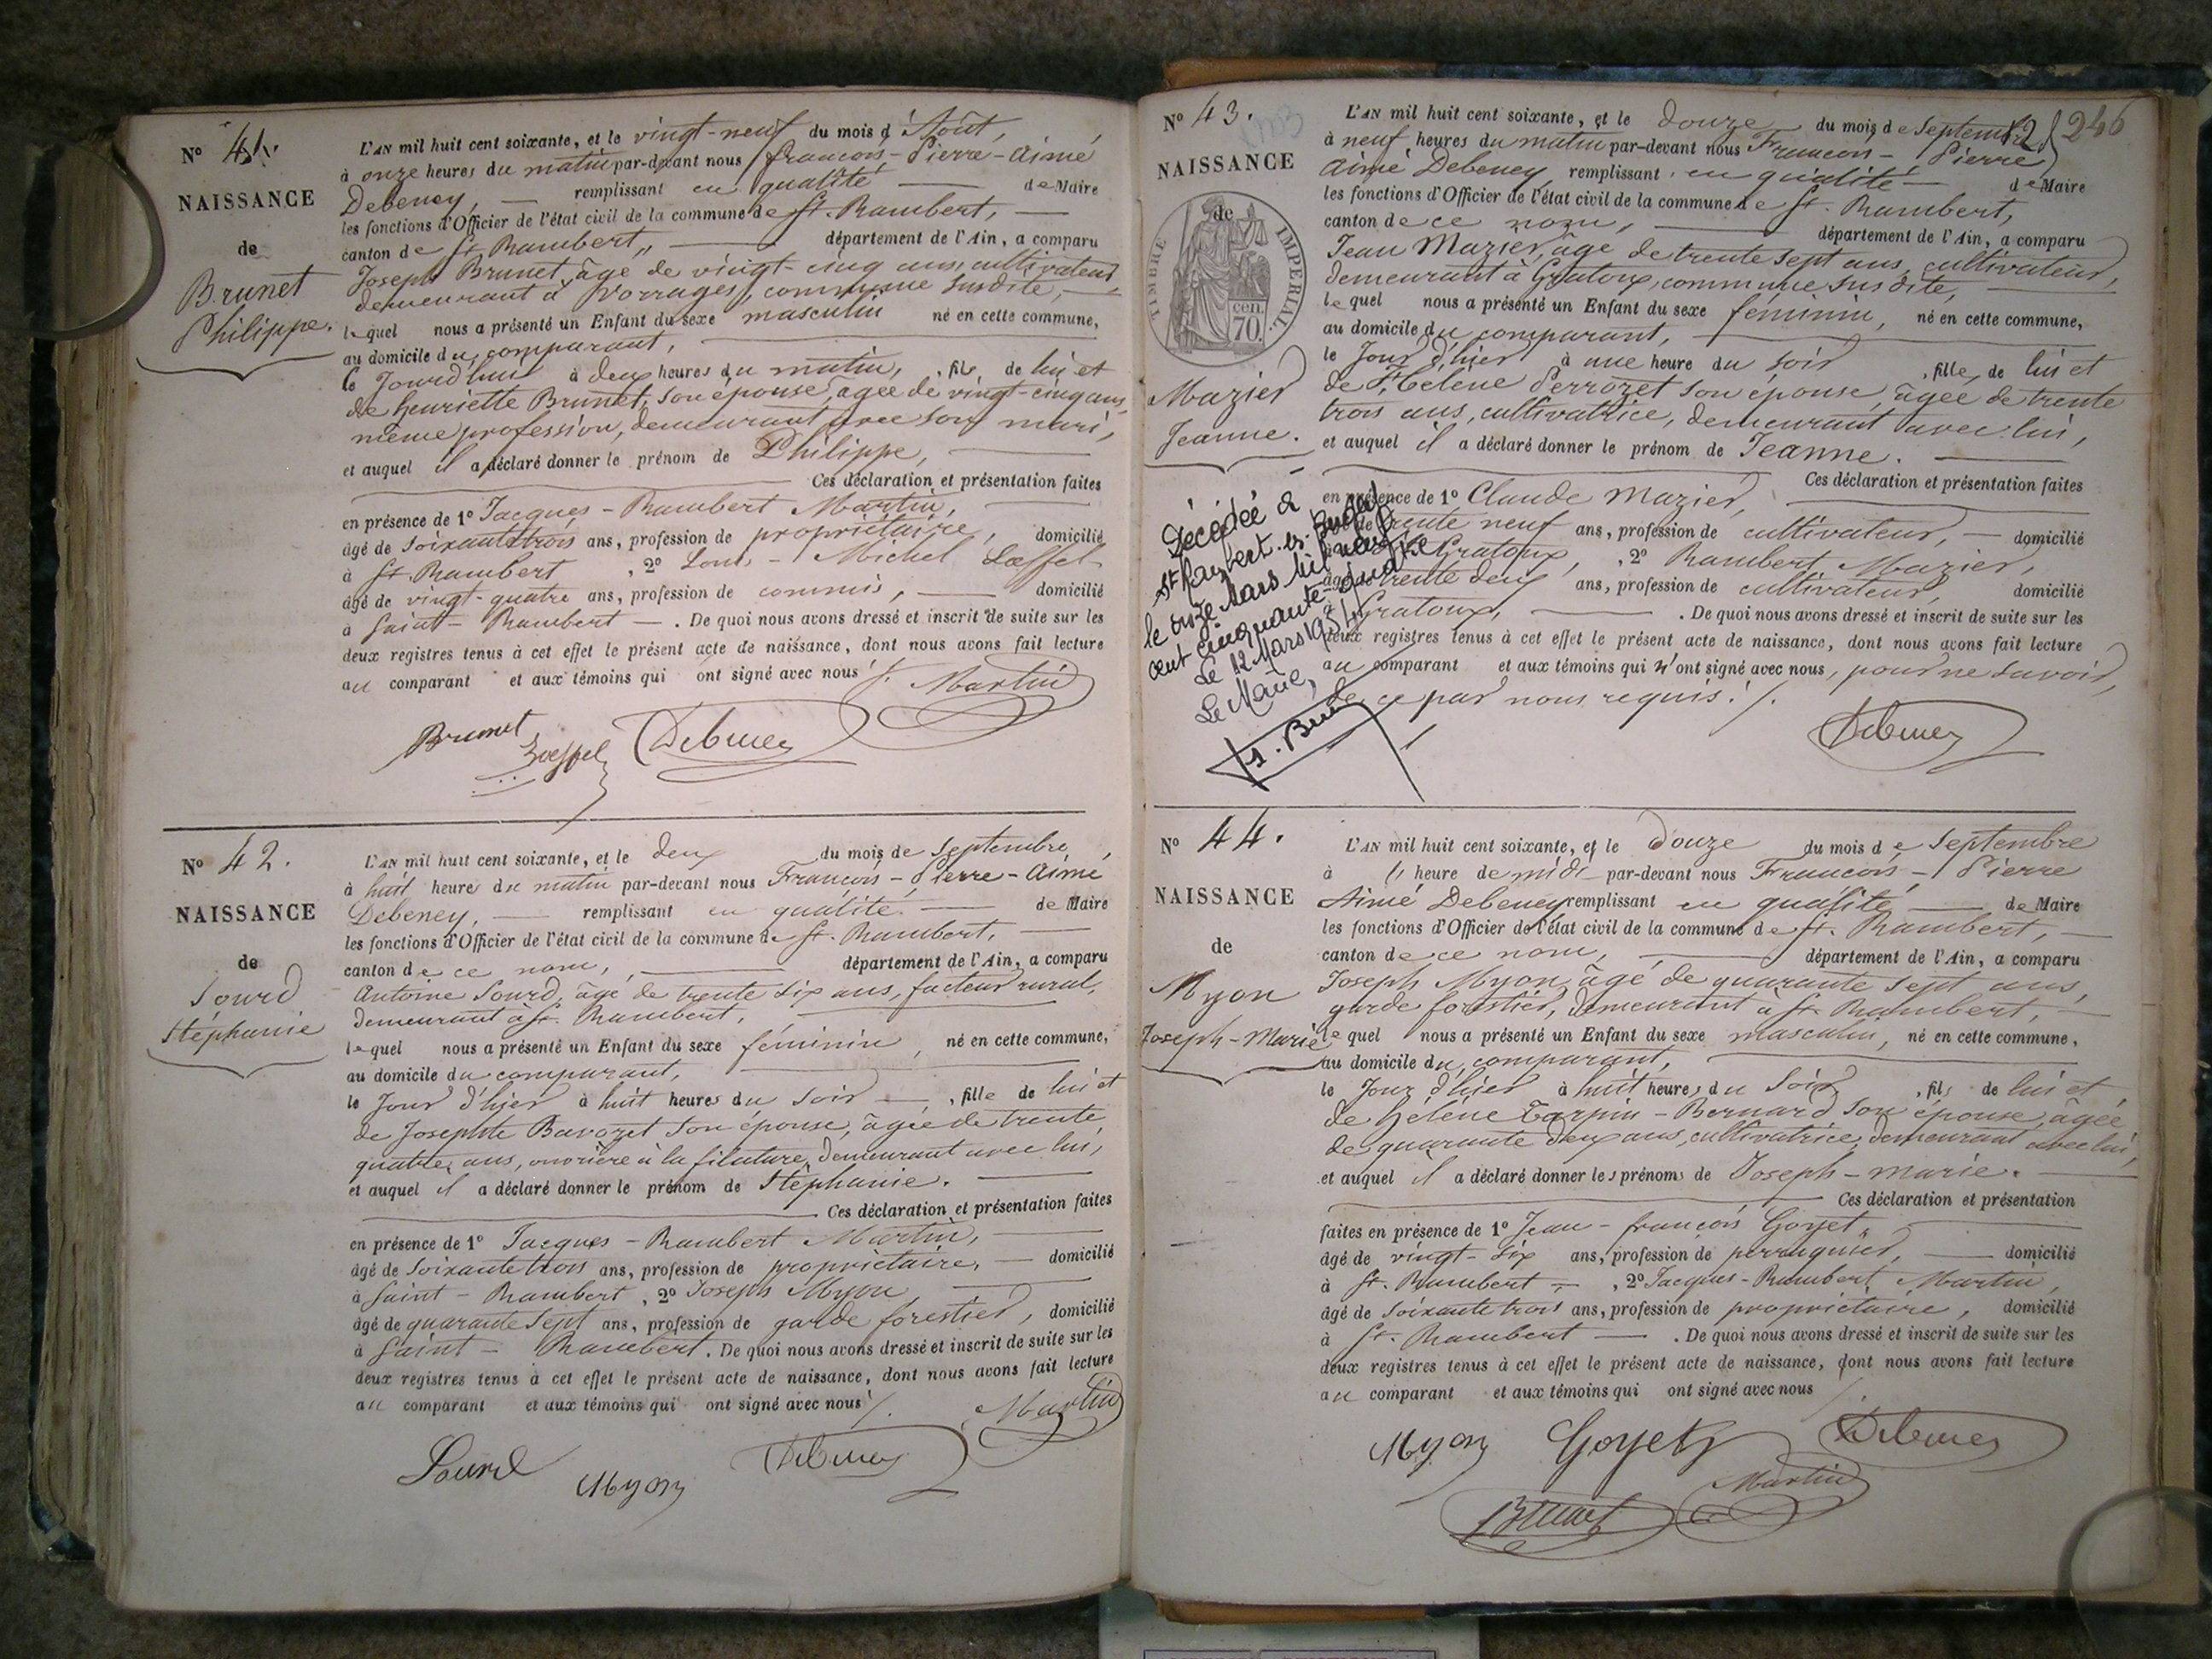 N° 41.
NAISSANCE
de
Brunet
Philippe.
L'AN mil huit cent soixante, et le vingt-neuf du mois d'Août,
à onze heures du matin par-devant nous François-Pierre-Aimé
Debeney, remplissant en qualité de Maire
les fonctions d'Officier de l'état civil de la commune de St. Rambert,
canton de St. Rambert, département de l'Ain, a comparu
Joseph Brunet, âgé de vingt-cinq ans, cultivateur,
demeurant à Vorrages, commune susdite,
lequel nous a présenté un Enfant du sexe masculin né en cette commune,
au domicile du comparant,
le Jourd'hui à deux heures du matin, fils de lui et
de henriette Brunet, son épouse, âgée de vingt-cinq ans,
même profession, demeurant avec son mari,
et auquel il a déclaré donner le prénom de Philippe,
Ces déclaration et présentation faites
en présence de 1° Jacques-Rambert Martin,
âgé de soixante trois ans, profession de propriétaire, domicilié
à St. Rambert, 2° Louis-Michel Lœffel
âgé de vingt-quatre ans, profession de commis, domicilié
à Saint-Rambert. De quoi nous avons dressé et inscrit de suite sur les
deux registres tenus à cet effet le présent acte de naissance, dont nous avons fait lecture
au comparant et aux témoins qui ont signé avec nous ./.
Martin
Brunet
Debeney
N° 42.
NAISSANCE
de
Sourd
Stéphanie
L'AN mil huit cent soixante, et le deux du mois de septembre,
à huit heures du matin par-devant nous François-Pierre-Aimé
Debeney, remplissant en qualité de Maire
les fonctions d'Officier de l'état civil de la commune de St. Rambert,
canton de ce nom, département de l'Ain, a comparu
Antoine Sourd, âgé de trente six ans, facteur rural,
demeurant à St. Rambert,
lequel nous a présenté un Enfant du sexe féminin, né en cette commune,
au domicile du comparant,
le Jour d'hier à huit heures du soir, fille de lui et
de Josephte Bavozet son épouse, âgée de trente
quatre ans, ouvrière à la filature, demeurant avec lui,
et auquel il a déclaré donner le prénom de Stéphanie.
Ces déclaration et présentation faites
en présence de 1° Jacques-Rambert Martin,
âgé de soixante trois ans, profession de propriétaire, domicilié
à Saint-Rambert, 2° Joseph Myon
âgé de quarante sept ans, profession de garde forestier, domicilié
à Saint-Rambert. De quoi nous avons dressé et inscrit de suite sur les
deux registres tenus à cet effet le présent acte de naissance, dont nous avons fait lecture
au comparant et aux témoins qui ont signé avec nous ./.
Martin
Sourd
Myon
Debeney
246
N° 43.
NAISSANCE
de
TIMBRE IMPERIAL.
70 cen
Mazier
Jeanne.
L'AN mil huit cent soixante, et le douze du mois de septembre
à neuf heures du matin par-devant nous François-Pierre
Aimé Debeney, remplissant en qualité de Maire
les fonctions d'Officier de l'état civil de la commune de St. Rambert,
canton de ce nom, département de l'Ain, a comparu
Jean Mazier, âgé de trente sept ans, cultivateur,
demeurant à Gratoux, commune susdite,
lequel nous a présenté un Enfant du sexe féminin, né en cette commune,
au domicile du comparant,
le Jour d'hier à une heure du soir, fille de lui et
de Hélène Perrozet son épouse, âgée de trente
trois ans, cultivatrice, demeurant avec lui,
et auquel il a déclaré donner le prénom de Jeanne.
Ces déclaration et présentation faites
en présence de 1° Claude Mazier,
âgé de trente neuf ans, profession de cultivateur, domicilié
à Gratoux, 2° Rambert Mazier,
âgé de trente deux ans, profession de cultivateur, domicilié
à Gratoux, . De quoi nous avons dressé et inscrit de suite sur les
deux registres tenus à cet effet le présent acte de naissance, dont nous avons fait lecture
au comparant et aux témoins qui n'ont signé avec nous, pour ne savoir,
de ce par nous requis ./.
Debeney
Décédée à
St Rambert-en-Bugey
le onze Mars mil neuf
cent cinquante-quatre
Le 12 Mars 1954
Le Maire,
N° 44.
NAISSANCE
de
Myon
Joseph-Marie
L'AN mil huit cent soixante, et le douze du mois de septembre
à heure de midi par-devant nous François-Pierre
Aimé Debeney remplissant en qualité de Maire
les fonctions d'Officier de l'état civil de la commune de St. Rambert,
canton de ce nom, département de l'Ain, a comparu
Joseph Myon, âgé de quarante sept ans,
garde forestier, demeurant à St. Rambert,
lequel nous a présenté un Enfant du sexe masculin, né en cette commune,
au domicile du comparant,
le Jour d'hier à huit heures du soir, fils de lui et
de Hélène Tarpin-Bernard son épouse, âgée
de quarante deux ans, cultivatrice, demeurant avec lui,
et auquel il a déclaré donner les prénoms de Joseph-Marie.
Ces déclaration et présentation
faites en présence de 1° Jean-françois Goyet,
âgé de vingt-six ans, profession de perruquier, domicilié
à St. Rambert, 2° Jacques-Rambert Martin,
âgé de soixante trois ans, profession de propriétaire, domicilié
à St. Rambert. De quoi nous avons dressé et inscrit de suite sur les
deux registres tenus à cet effet le présent acte de naissance, dont nous avons fait lecture
au comparant et aux témoins qui ont signé avec nous ./.
Myon
Goyet
Debeney
Martin